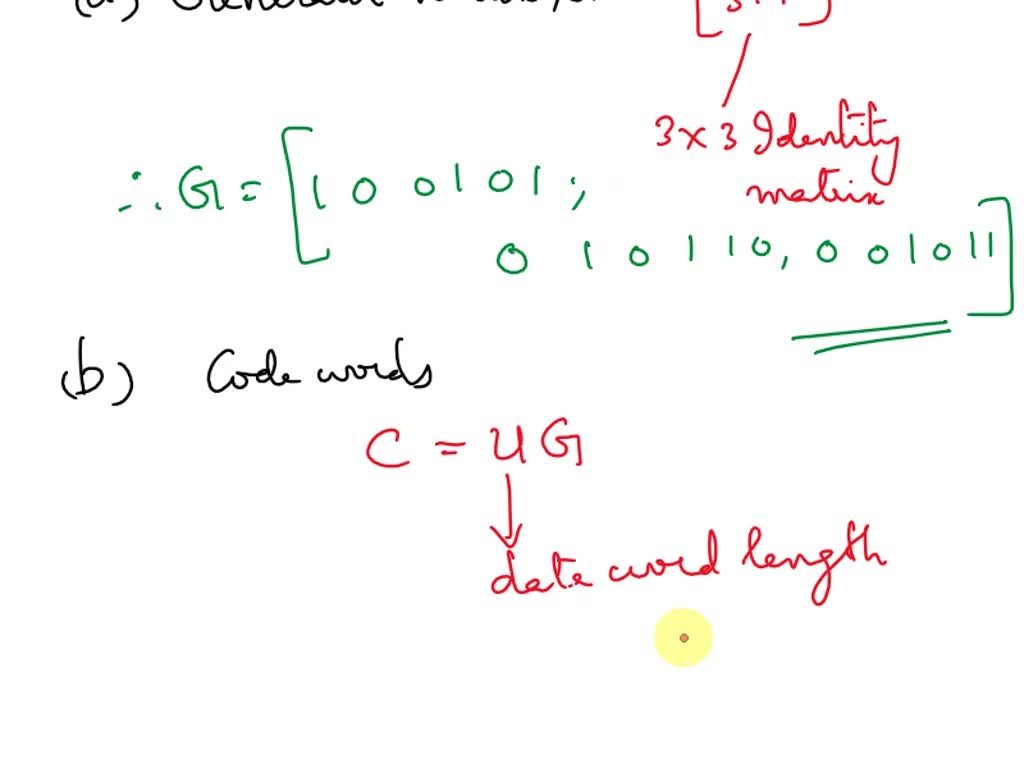 (a)
3×3 Identity
matrix
∴ G = [1 0 0 1 0 1 ;
0 1 0 1 1 0, 0 0 1 0 1 1]
(b) Code words
C = UG
date word length